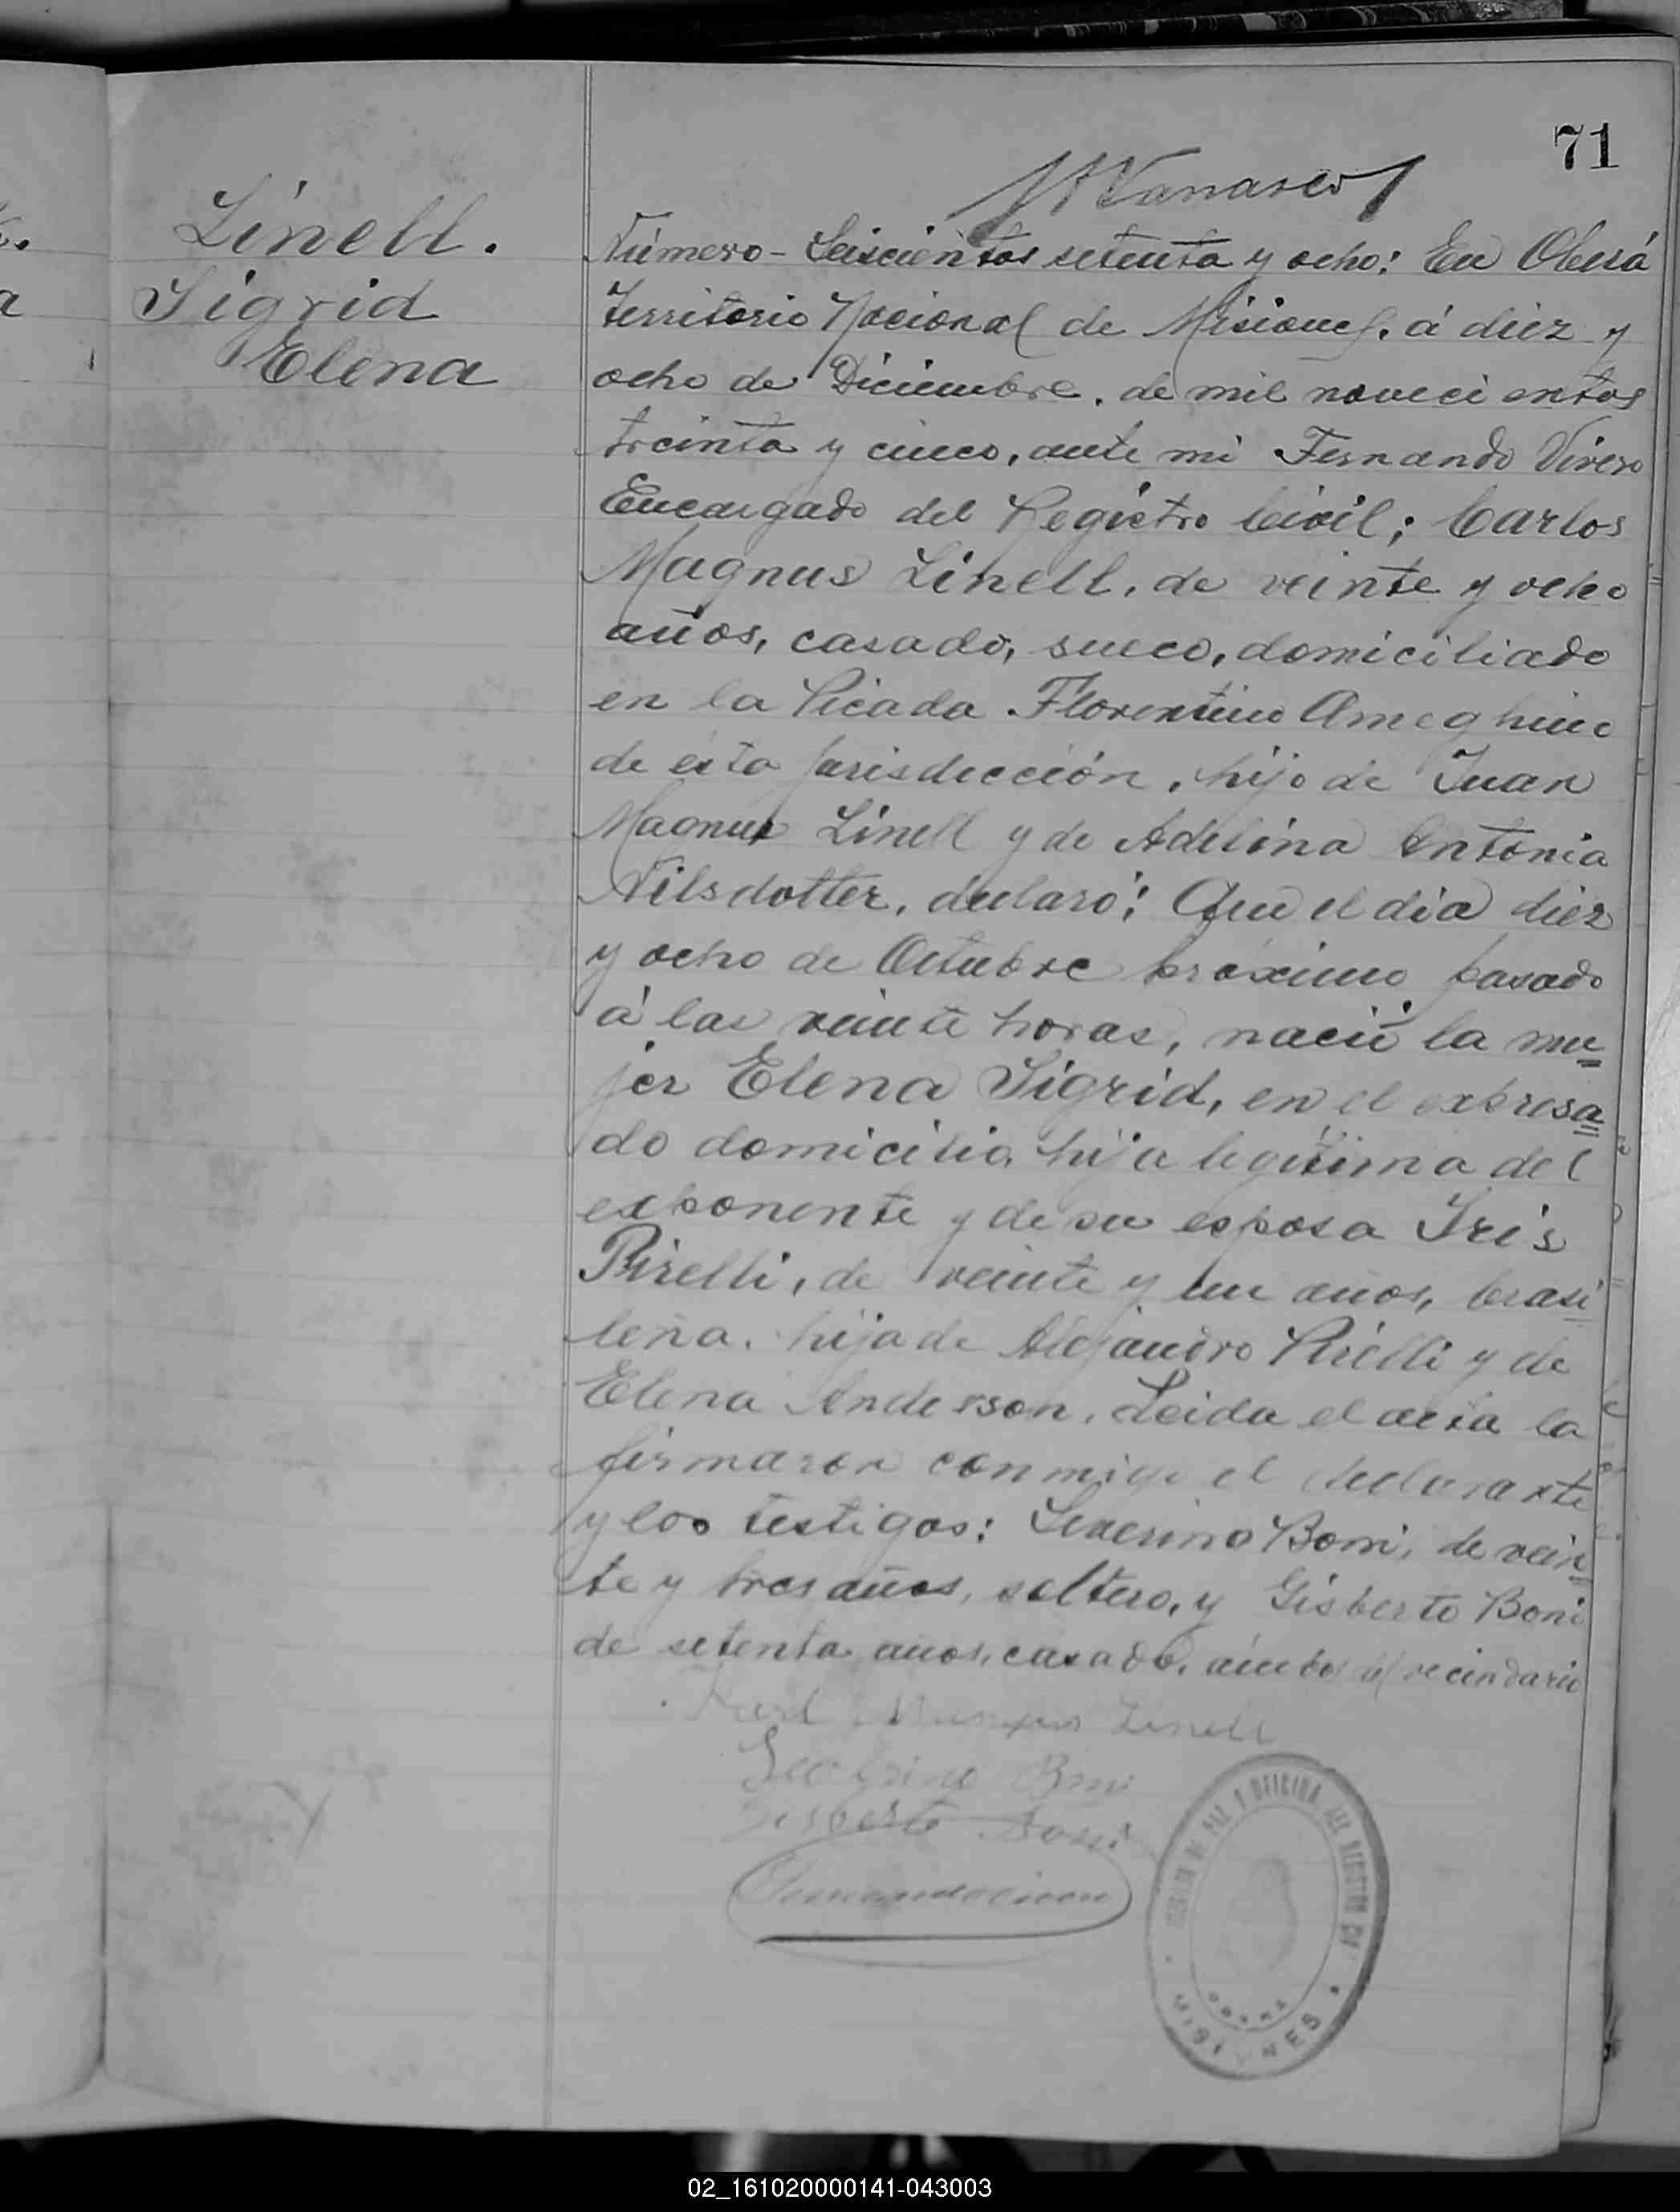 71
Linell.
Sigrid
Elena
Número - Seiscientos setenta y ocho: En Oberá
Territorio Nacional de Misiones, á diez y
ocho de Diciembre, de mil noveci entos
treinta y cinco, ante mi Fernando Vivero
Encargado del Registro Civil; Carlos
Magnus Linell, de veinte y ocho
años, casado, sueco, domiciliado
en la Picada Florentino Ameghino
de ésta jurisdicción, hijo de Juan
Magnus Linell y de Adelina Antonia
Nilsdotter, declaró: Que el día diez
y ocho de Octubre próximo pasado
á las veinte horas, nació la mu=
jer Elena Sigrid, en el expresa=
do domicilio, hija legítima del
exponente y de su esposa Iris
Pirelli, de veinte y un años, brasi=
leña, hija de Alejandro Pirelli y de
Elena Anderson. Leida el acta la
firmaron conmigo el declarante
y los testigos: Severino Boni, de vein=
te y tres años, soltero, y Gisberto Boni
de setenta años, casado, ámbos del vecindario
Karl Magnus Linell
Severino Boni
Gisberto Boni
JUZGADO DE PAZ Y OFICINA DEL REGISTRO CIVIL
OBERA
MISIONES
02_161020000141-043003